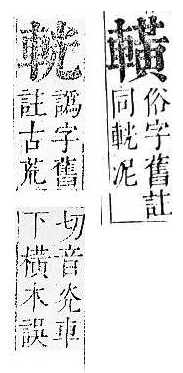 𨎩
俗字舊註
同輄泥
輄
譌字舊
註古荒
切音灮車
下橫木誤